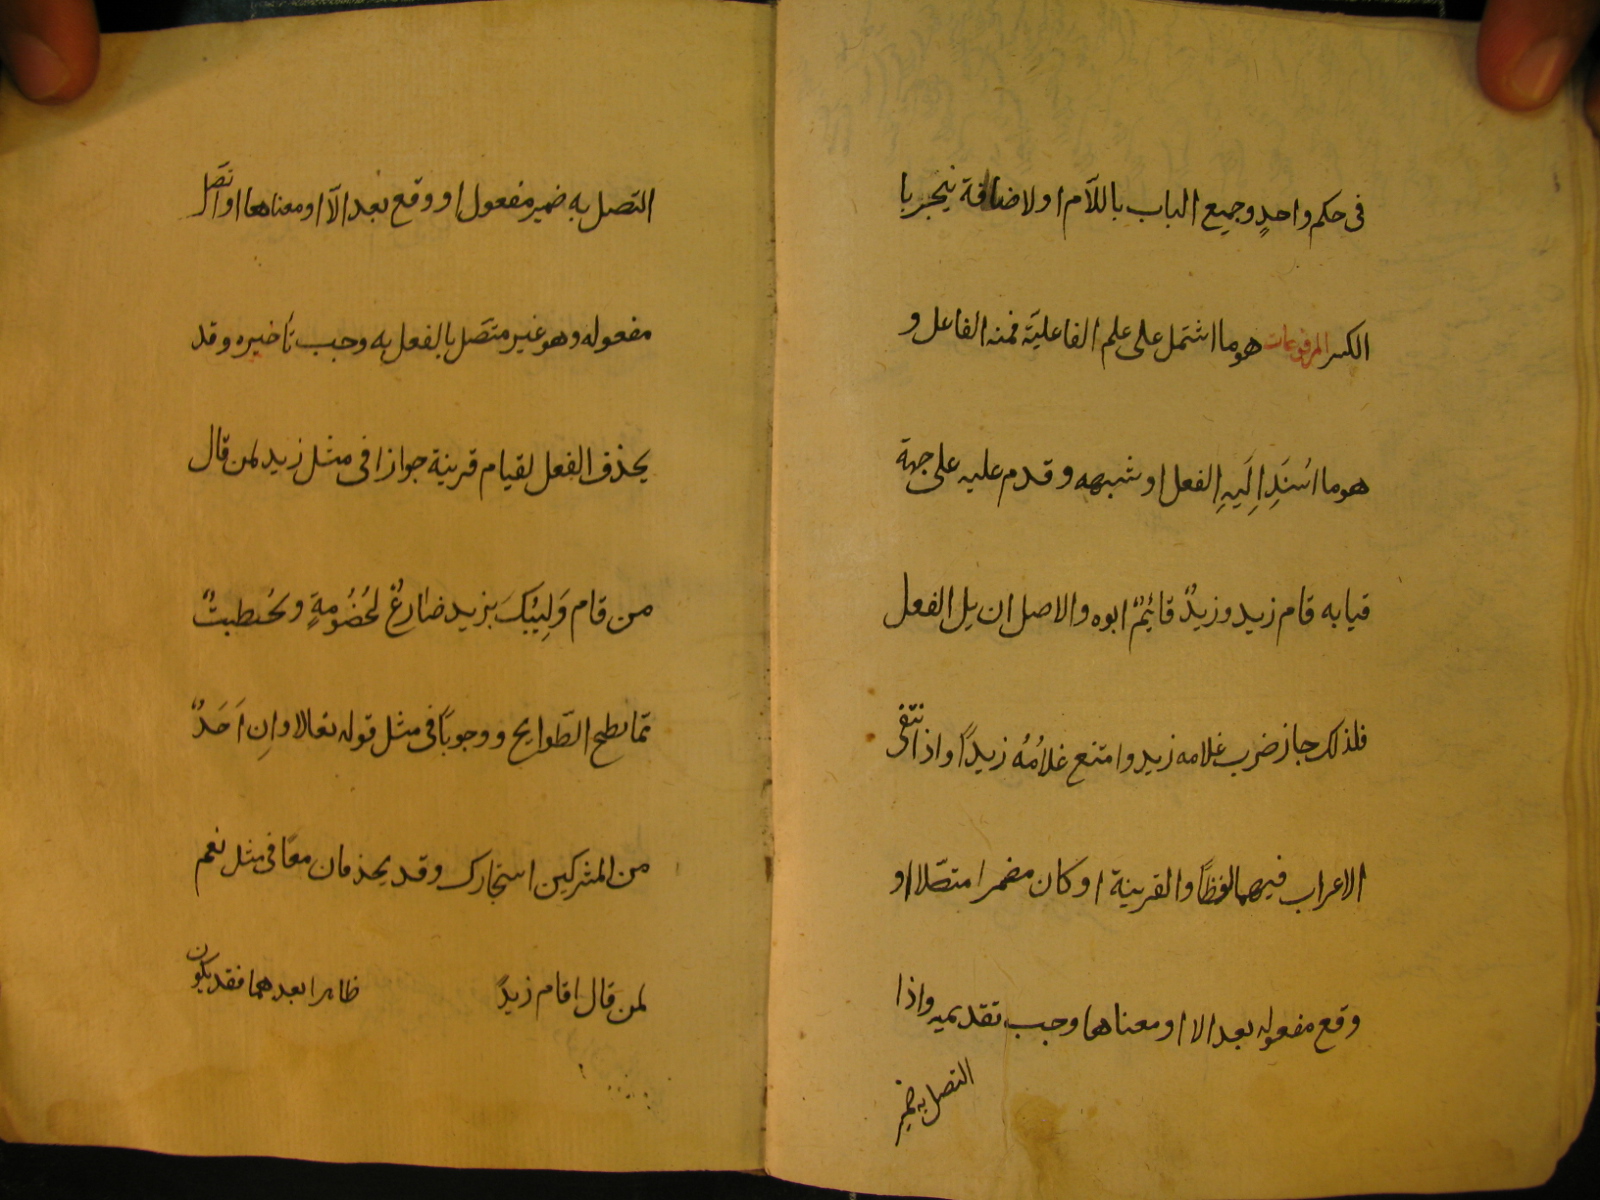 فى حكم واحدٍ وجميع الباب باللآم اولاضافة ينجر با
الكسر المرفوعات هوما اشتمل على علم الفاعليّة فمنه الفاعل و
هوما اسَنَدِ اِلَيهِ الفعل اوشبهه وقدم عليه على جهة
قيابه قام زيد وزيدٌ قائيمٌ ابوه والاصل ان يل الفعل
فلذلك جاز ضرب غلامه زيد وامتنع غلامُهُ زيداً واذا نتفى
الاعراب فيهما لفظاً والقرينة اوكان مضمرا متصّلا او
وقع مفعوله بعد الا اومعناهما وجب تقديميه واذا
التصل به ضمير
التصل به ضمير مفعول او وقع بعد الآ اومعناهما او اتصل
مفعوله وهو غير متصَل بالفعل به وجب تأخيره وقد
يحذف الفعل لقيام قرينة جوازا فى مثل زيد لمن قال
من قام وَلِيُبْكَ يزيد ضارعٌ لخُصُومةٍ و مُختطبتٌ
تما تطيح الطّوايح ووجوباً فى مثل قوله تعالا واِن اَحَدٌ
من المشركين استجارك وقد يحذفان معًا فى مثل نعم
لمن قال اقام زيدً ظاهرا بعدهما فقد يكون